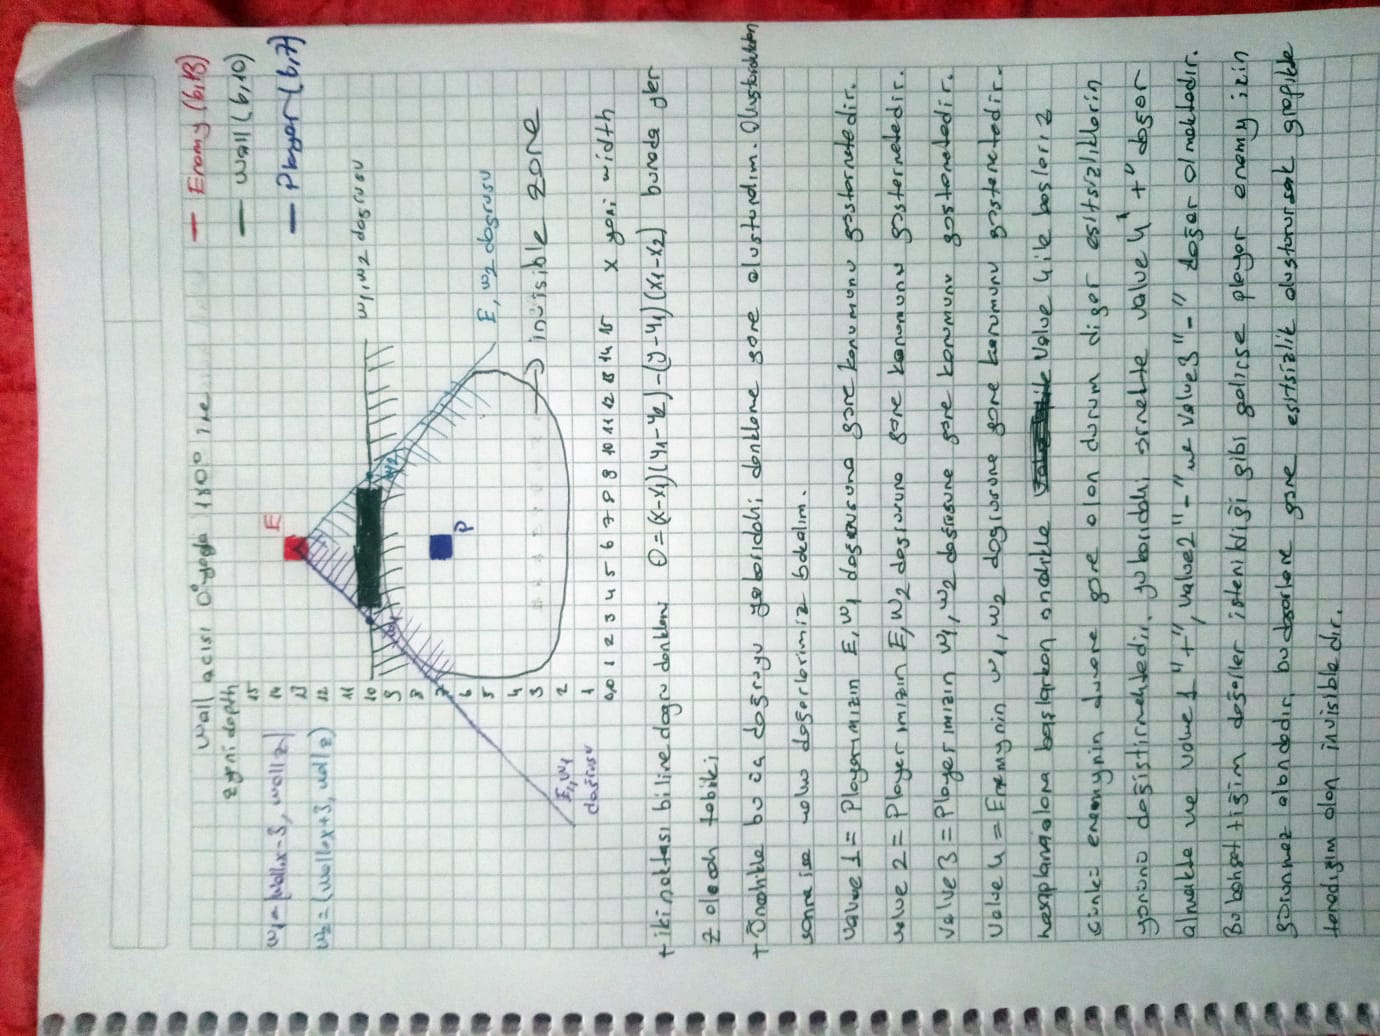 Wall acısı 0° yada 180° ise
z yani depth
Enemy (6,13)
Wall (6,10)
Player (6,7)
w1=(wall.x-3, wall z)
w2=(wall.x+3, wall z)
15
14
13
12
11
10
9
8
7
6
5
4
3
2
1
E
w1, w2 doğrusu
w2
P
E, w2 doğrusu
invisible zone
E, w1
doğrusu
0,0 1 2 3 4 5 6 7 8 9 10 11 12 13 14 15 x yani width
+ iki noktası biline dogru denklemi 0=(x-x1)(y1-y2)-(y-y1)(x1-x2) burada yler
z olacak tabiki
+ Öncelikle bu üç doğruyu yukarıdaki denkleme göre olusturdım. Olusturduktan
sonra ise value değerlerimiz bakalım.
value 1 = Playerımızın E, w1 doğrusuna göre konumunu göstermetedir.
value 2 = Player ımızın E, w2 dogrusuna göre konumunu göstermetedir.
value 3 = Player ımızın w1, w2 doğrusune göre konumunu göstermetedir.
value 4 = Enemynin w1, w2 dogrusuna göre konumunu göstermetedir.
hesaplamalara baslarken öncelikle value 4 ile baslarız
cünkü enemynin duvara göre olan durum diger esitsizliklerin
yönünü değistirmektedir. yukarıdaki örnekte value 4 "+" değer
almakta ve value 1 "+", value2 "-" ve value3 "-" değer olmaktadır.
Bu bahsettiğim değeller istenildiği gibi gelirse player enemy icin
görünmez alandadır, bu değerlere göre esitsizlik olusturursak grafikte
taradığım alan invisibledır.